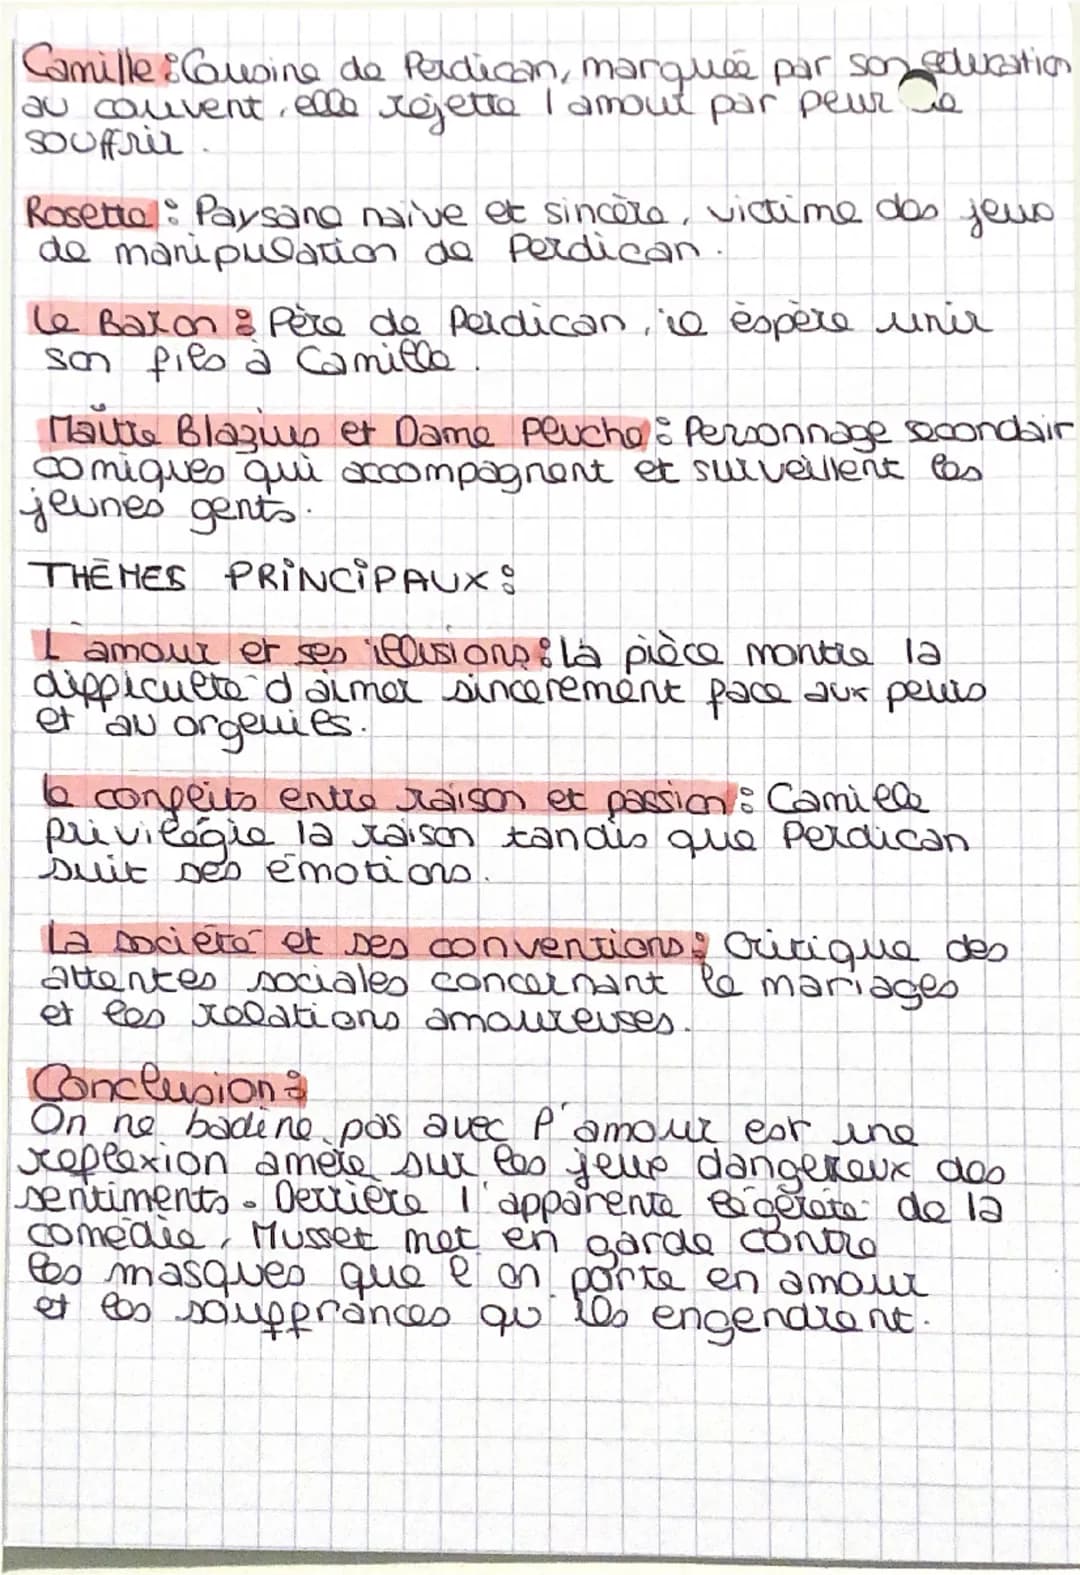 Camille : Cousine de Perdican, marquée par son education
au couvent, elle rejette l amour par peur de
souffrir.
Rosette : Paysane naïve et sincère, victime des jeux
de manipulation de Perdican.
Le Baron : Père de Perdican, il èspère unir
son fils à Camille.
Maître Blazius et Dame Pluche : Personnage secondair
comiques qui accompagnent et surveillent les
jeunes gents.
THÈMES PRINCIPAUX :
L'amour et ses illusions : La pièce montre la
difficulté d aimer sincerement face aux peurs
et au orgeuils.
le conflits entre raison et passion : Camille
privilégie la raison tandis que Perdican
suit ses émotions.
La société et ses conventions : Critique des
attentes sociales concernant le mariages
et les relations amoureuses.
Conclusion :
On ne badine pas avec l'amour est une
reflexion amère sur les jeux dangereux des
sentiments. Derrière l'apparente légèreté de la
comédie, Musset met en garde contre
les masques que l on porte en amour
et les souffrances qu'ils engendrent.